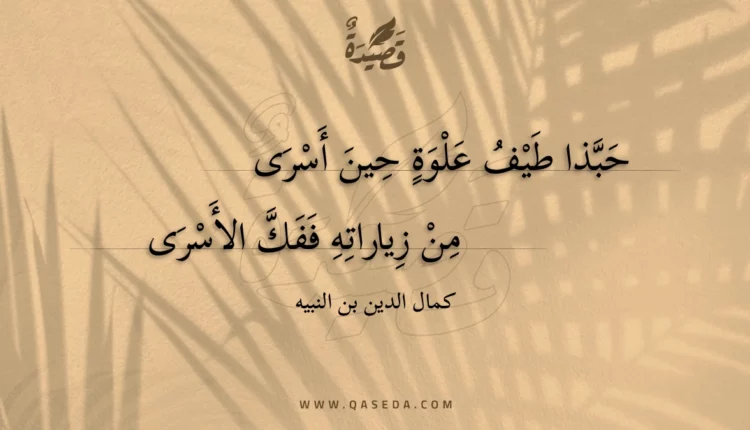 قَصِيْدَةٌ
حَبَّذا طَيْفُ عَلْوَةٍ حِينَ أَسْرَى
مِنْ زِياراتِهِ فَفَكَّ الأَسْرَى
كمال الدين بن النبيه
WWW.QASEDA.COM